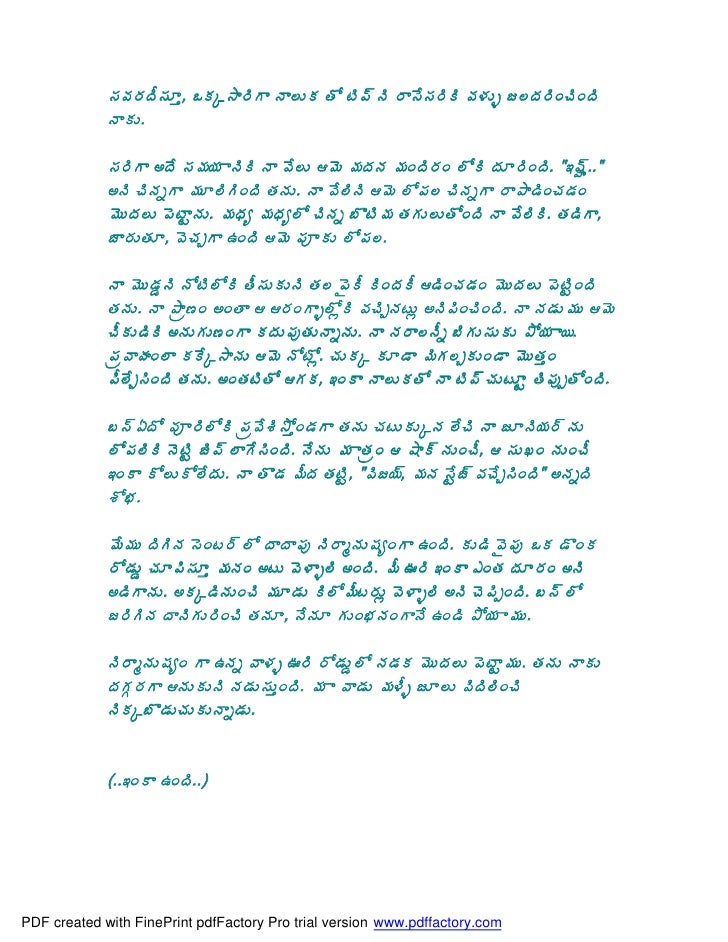 సవరదీసూ, ఒక్కసారిగా నాలుక తో టిప్ ని రాసేసరికి వళ్ళు జలదరించింది
నాకు.
సరిగా అదే సమయానికి నా వేలు ఆమె మదన మందిరం లోకి దూరింది. "ఇష్ష్.."
అని చిన్నగా మూలిగింది తను. నా వేలిని ఆమె లోపల చిన్నగా రాపాడించడం
మొదలు పెట్టాను. మధ్య మధ్యలో చిన్న బొటిమ తగులుతోంది నా వేలికి. తడిగా,
జారుతూ, వెచ్చగా ఉంది ఆమె పూకు లోపల.
నా మొడ్డని నోటిలోకి తీసుకుని తల పైకీ కిందకీ ఆడించడం మొదలు పెట్టింది
తను. నా ప్రాణం అంతా ఆ ఆరంగాళ్లోకి వచ్చినట్లు అనిపించింది. నా నడుము ఆమె
చీకుడికి అనుగుణంగా కదుపుతున్నాను. నా నరాలన్నీ బిగుసుకు పోయాయి.
ప్రవాహంలా కక్కేసాను ఆమె నోట్లో. చుక్క కూడా మిగల్చకుండా మొత్తం
పీల్చేసింది తను. అంతటితో ఆగక, ఇంకా నాలుకతో నా టిప్ చుట్టూ తిప్పుతోంది.
బస్ ఏదో వూరిలోకి ప్రవేశిస్తోండగా తను చటుక్కున లేచి నా జూనియర్ ను
లోపలికి నెట్టి జిప్ లాగేసింది. నేను మాత్రం ఆ షాక్ నుంచీ, ఆ సుఖం నుంచీ
ఇంకా కోలుకోలేదు. నా తొడ మీద తట్టి, "విజయ్, మన స్టేజ్ వచ్చేసింది" అన్నది
శోభ.
మేము దిగిన సెంటర్ లో దాదాపు నిర్మానుష్యంగా ఉంది. కుడి వైపు ఒక డొంక
రోడ్డు చూపిస్తూ మనం అటు వెళ్ళాలి అంది. మీ ఊరి ఇంకా ఎంత దూరం అని
అడిగాను. అక్కడినుంచి మూడు కిలోమీటర్లు వెళ్ళాలి అని చెప్పింది. బస్ లో
జరిగిన దానిగురించి తనూ, నేనూ గుంభనంగానే ఉండి పోయాము.
నిర్మానుష్యం గా ఉన్న వాళ్ళ ఊరి రోడ్డులో నడక మొదలు పెట్టాము. తను నాకు
దగ్గరగా ఆనుకుని నడుస్తుంది. మా వాడు మళ్ళీ జూలు విదిలించి
నిక్కబొడుచుకున్నాడు.
(..ఇంకా ఉంది..)
PDF created with FinePrint pdfFactory Pro trial version www.pdffactory.com